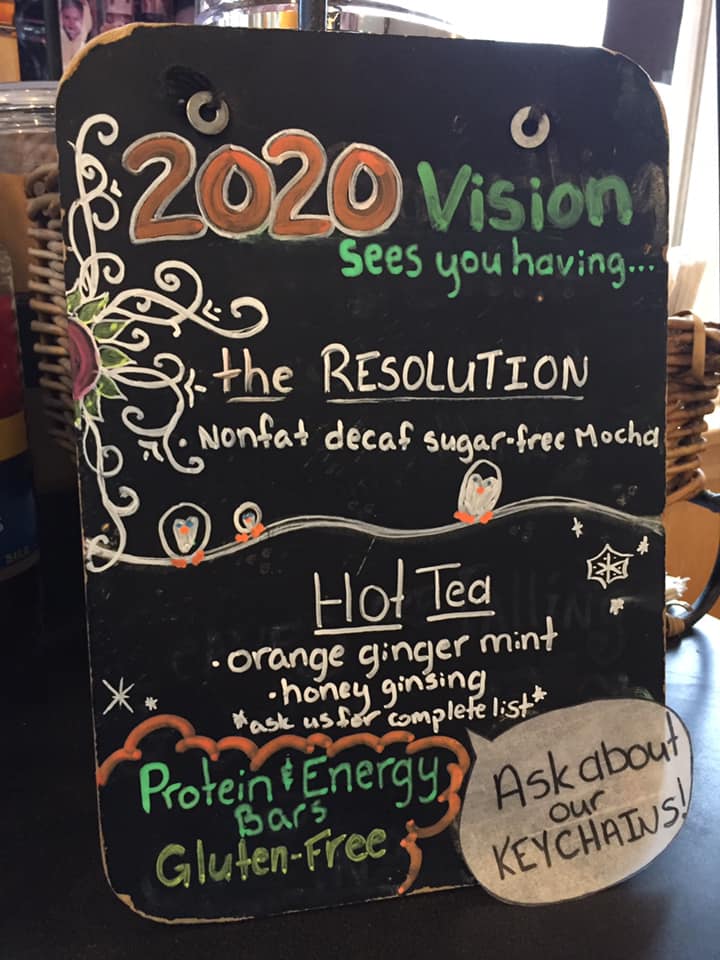 2020 Vision
sees you having...
the RESOLUTION
• Nonfat decaf sugar-free Mocha
Hot Tea
• orange ginger mint
• honey ginsing
*ask us for complete list*
Protein & Energy
Bars
Gluten-Free
Ask about
our
KEYCHAINS!